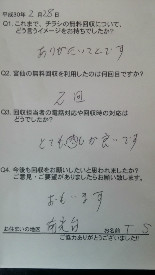 平成30年2月28日
Q1. これまで、チラシの無料回収について、
どう言うイメージをお持ちでしたか?
ありがたいてんです
Q2. 富仙の無料回収を利用したのは何回目ですか?
2回
Q3. 回収担当者の電話対応や回収時の対応は
どうでしたか?
とても感じが良いです
Q4. 今後も回収をお願いしたいと思われましたか?
ご意見・ご要望がありましたらお願い致します。
おもいます
お住まいの地区
お名前 T S
ご協力ありがとうございました!!